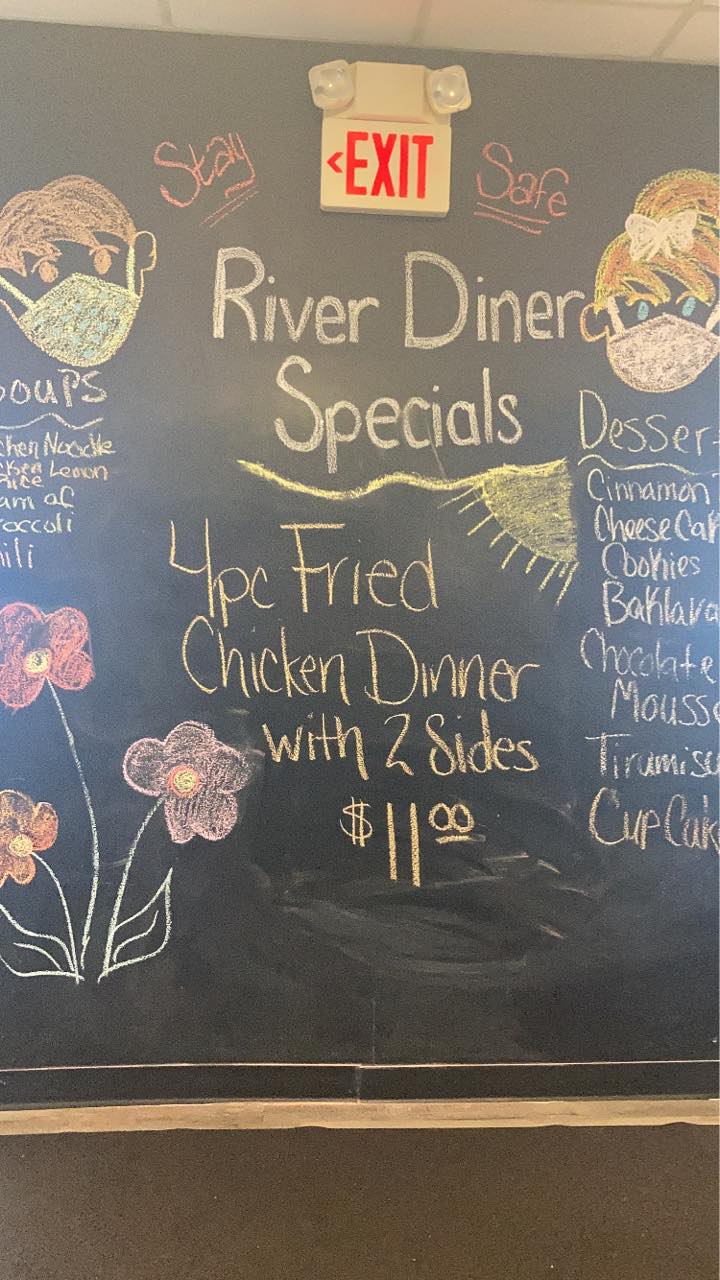 Stay
<EXIT
Safe
River Diner
Specials
4pc Fried
Chicken Dinner
with 2 Sides
$11.00
oups
chen Noodle
cken Lemon
Rice
am of
roccoli
ili
Desser
Cinnamon
Cheese Ca
Cookies
Baklava
Chocolate
Mousse
Tiramisu
CupCak